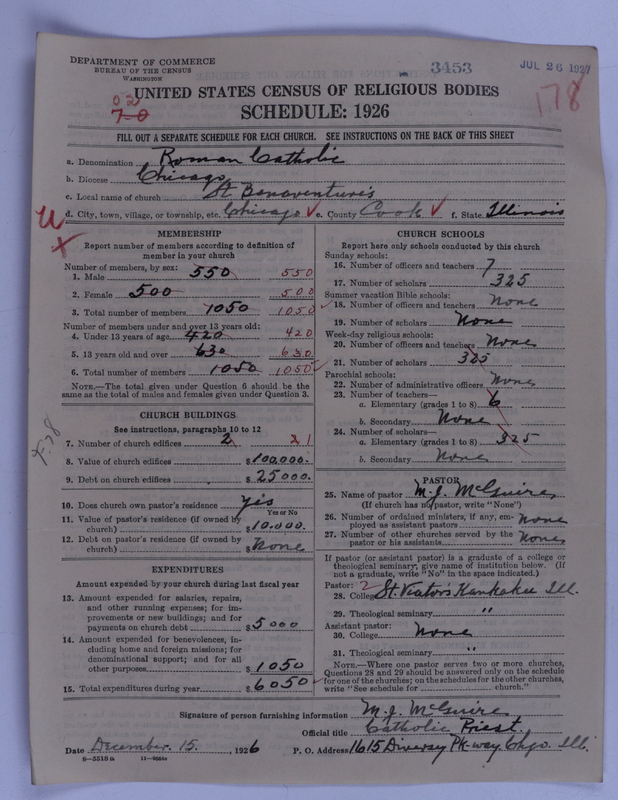 DEPARTMENT OF COMMERCE
BUREAU OF THE CENSUS
WASHINGTON
3453
JUL 26 1927
178
UNITED STATES CENSUS OF RELIGIOUS BODIES
SCHEDULE: 1926
FILL OUT A SEPARATE SCHEDULE FOR EACH CHURCH. SEE INSTRUCTIONS ON THE BACK OF THIS SHEET
a. Denomination Roman Catholic
b. Diocese Chicago
c. Local name of church St Bonaventure's
d. City, town, village, or township, etc. Chicago e. County Cook f. State Illinois
MEMBERSHIP
Report number of members according to definition of
member in your church
Number of members, by sex:
1. Male 550 550
2. Female 500 500
3. Total number of members 1050 1050
Number of members under and over 13 years old:
4. Under 13 years of age 420 420
5. 13 years old and over 630 630
6. Total number of members 1050 1050
NOTE.—The total given under Question 6 should be the
same as the total of males and females given under Question 3.
CHURCH BUILDINGS
See instructions, paragraphs 10 to 12
7. Number of church edifices 2 21
8. Value of church edifices $100,000.
9. Debt on church edifices $25000.
10. Does church own pastor's residence yes
Yes or No
11. Value of pastor's residence (if owned by
church) $10.000.
12. Debt on pastor's residence (if owned by
church) $None
EXPENDITURES
Amount expended by your church during last fiscal year
13. Amount expended for salaries, repairs,
and other running expenses; for im-
provements or new buildings; and for
payments on church debt $5000
14. Amount expended for benevolences, in-
cluding home and foreign missions; for
denominational support; and for all
other purposes $1050
15. Total expenditures during year $6050
CHURCH SCHOOLS
Report here only schools conducted by this church
Sunday schools:
16. Number of officers and teachers 7
17. Number of scholars 325
Summer vacation Bible schools:
18. Number of officers and teachers None
19. Number of scholars None
Week-day religious schools:
20. Number of officers and teachers None
21. Number of scholars 325
Parochial schools:
22. Number of administrative officers None
23. Number of teachers—
a. Elementary (grades 1 to 8) 6
b. Secondary None
24. Number of scholars—
a. Elementary (grades 1 to 8) 325
b. Secondary None
PASTOR
25. Name of pastor M. J. McGuire
(If church has no pastor, write "None")
26. Number of ordained ministers, if any, em-
ployed as assistant pastors None
27. Number of other churches served by the
pastor or his assistants None
If pastor (or assistant pastor) is a graduate of a college or
theological seminary, give name of institution below. (If
not a graduate, write "No" in the space indicated.)
Pastor: 2
28. College St. Viators Kankakee Ill.
29. Theological seminary "
Assistant pastor:
30. College None
31. Theological seminary "
NOTE.—Where one pastor serves two or more churches,
Questions 28 and 29 should be answered only on the schedule
for one of the churches; on the schedules for the other churches,
write "See schedule for church."
Signature of person furnishing information M. J. McGuire
Official title Catholic Priest
Date December 15, 1926 P. O. Address 1615 Diversey Pkway Chgo. Ill.
8—5518a